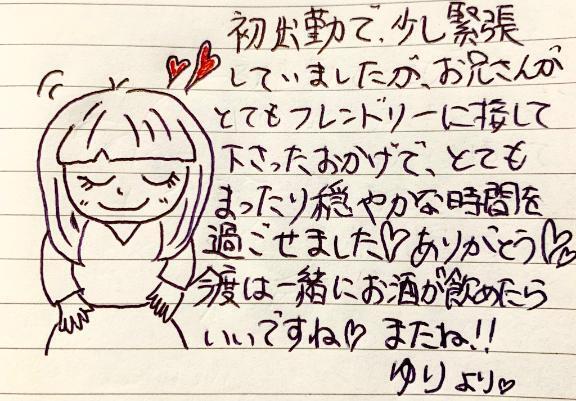 初出勤で、少し緊張
していましたが、お兄さんが
とてもフレンドリーに接して
下さったおかげで、とても
まったり穏やかな時間を
過ごせました♡ありがとう♡
今度は一緒にお酒が飲めたら
いいですね♡ またね!!
ゆりより♡